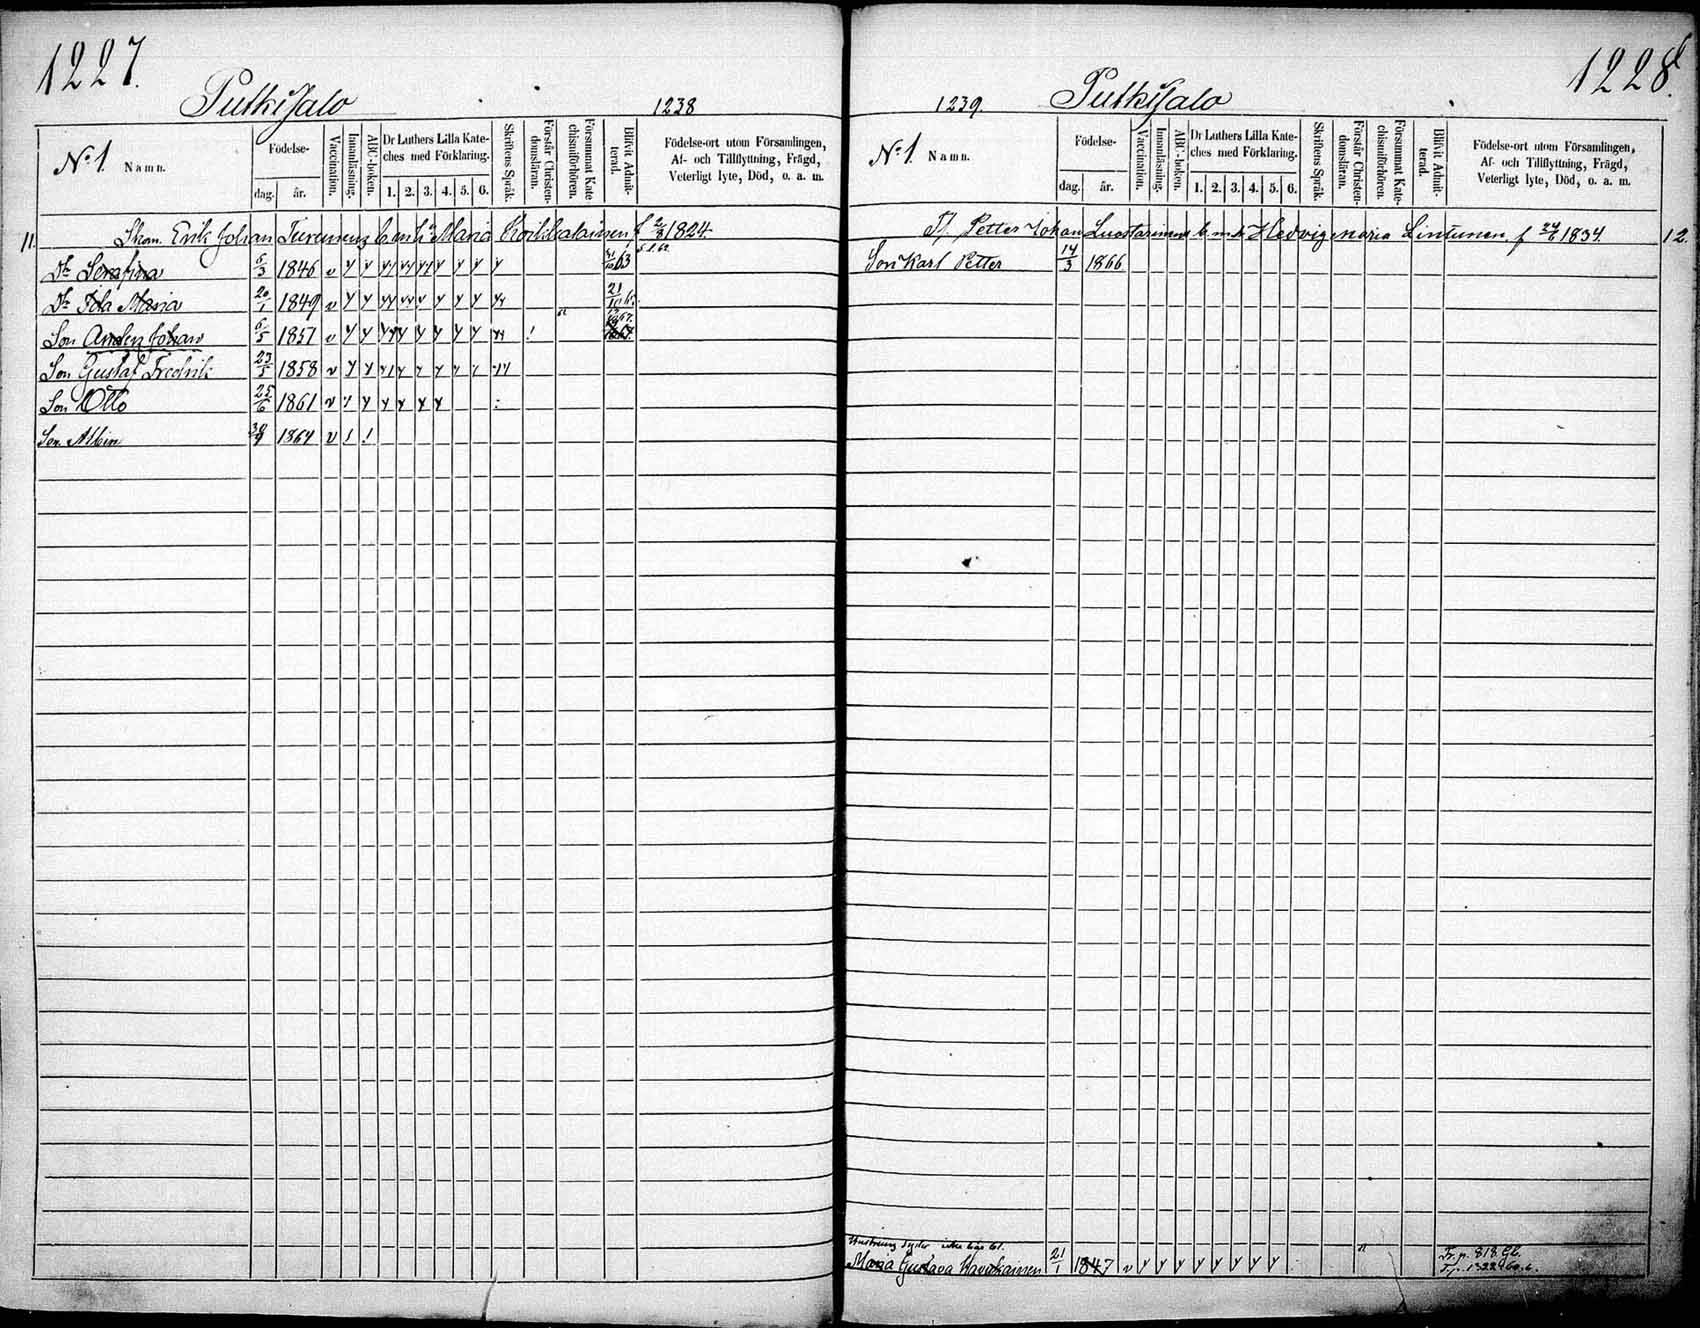 1227.
Putkisalo
1238
No 1 Namn.
Födelse-
dag. år.
Vaccination.
Innanläsning.
ABC-boken.
Dr Luthers Lilla Kate-
ches med Förklaring.
1. 2. 3. 4. 5. 6.
Skriftens Språk.
Förstår Christen-
domsläran.
Försummat Kate
chismiförhören.
Blifvit Admit-
terad.
Födelse-ort utom Församlingen,
Af- och Tillflyttning, Frägd,
Veterligt lyte, Död, o. a. m.
11. Skom. Erik Johan Turunens b. m. h. Maria Kockkalainen f 2/3 1824
Dr Serafina 6/3 1846 v 63
Dr Ida Maria 20/1 1849 v 21/10
Son Anders Johan 6/5 1851 v
Son Gustaf Fredrik 23/5 1858 v
Son Otto 25/6 1861 v
Son Albin 30/9 1864 v
1228.
1239.
Putkisalo
No 1. Namn.
Födelse-
dag. år.
Vaccination.
Innanläsning.
ABC-boken.
Dr Luthers Lilla Kate-
ches med Förklaring.
1. 2. 3. 4. 5. 6.
Skriftens Språk.
Förstår Christen-
domsläran.
Försummat Kate-
chismiförhören.
Blifvit Admit-
terad.
Födelse-ort utom Församlingen,
Af- och Tillflyttning, Frägd,
Veterligt lyte, Död, o. a. m.
Petter Johan Luostarinens b. m. h. Hedvig Maria Lintunen f 24/6 1834. 12
Son Karl Petter 14/3 1866
Hustruns syster
Maria Gustava Kavokainen 21/1 1847 v
Fr. p. 818